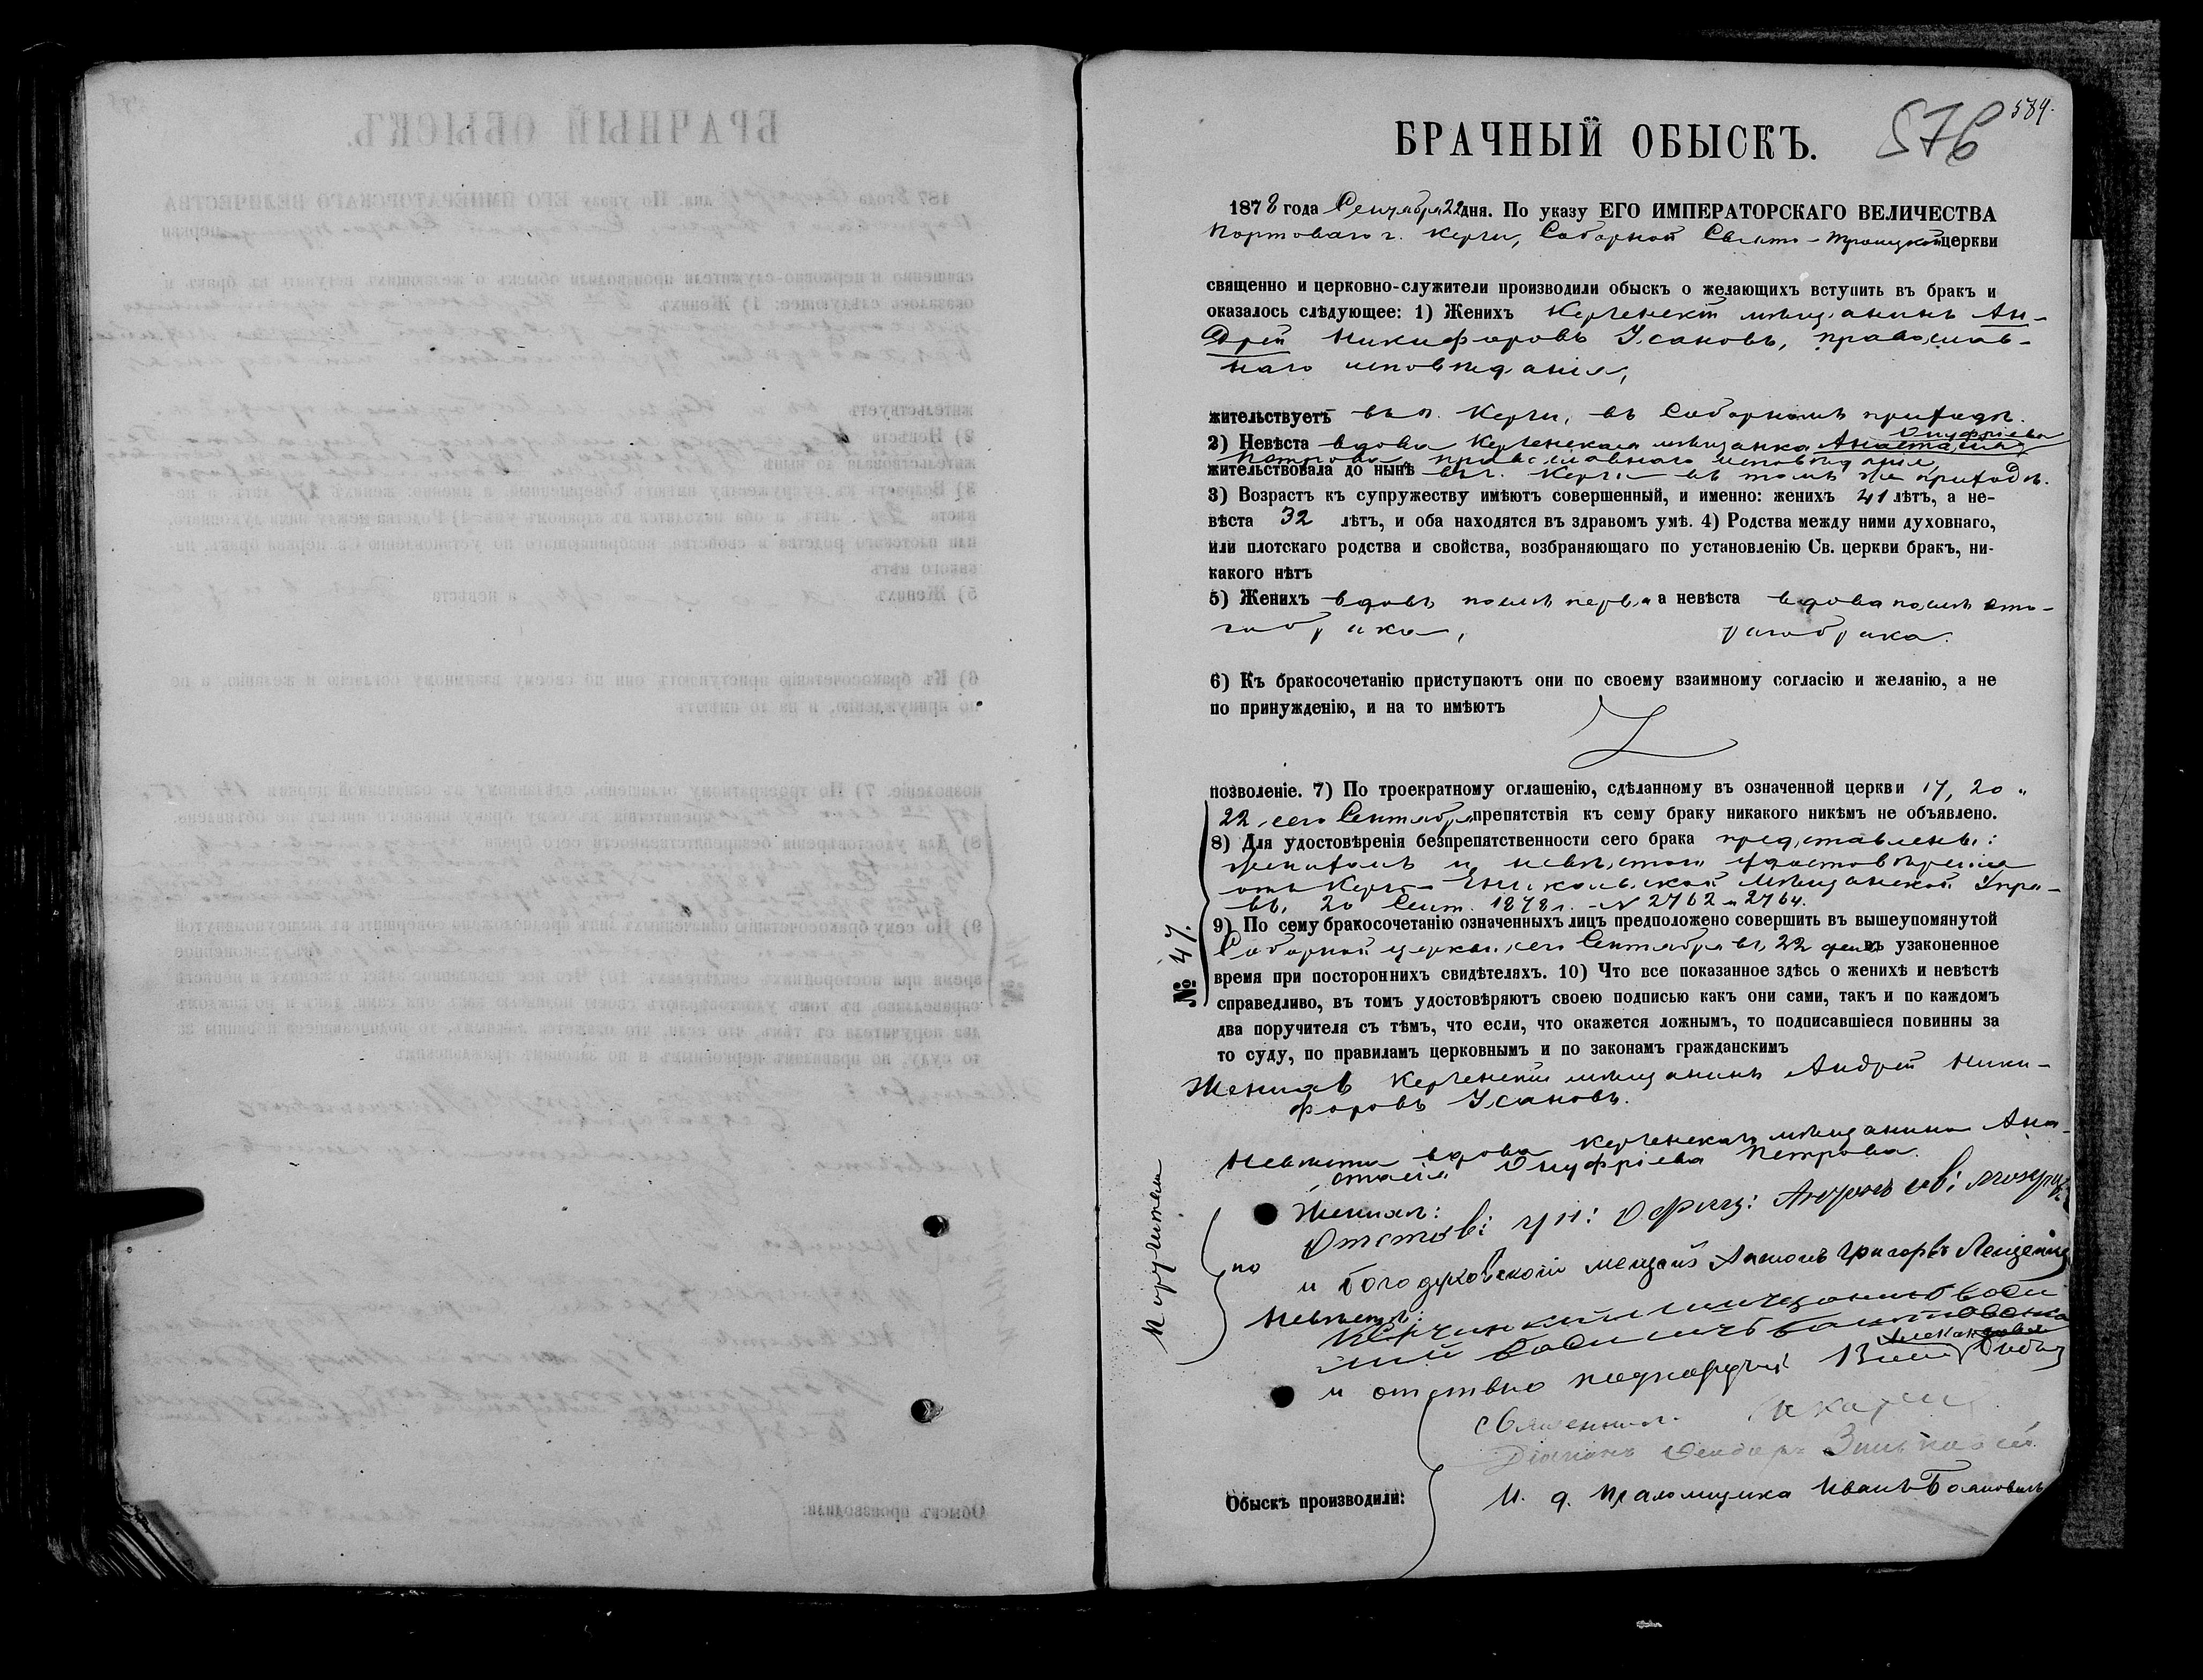 584.
576
БРАЧНЫЙ ОБЫСКЪ.
1878 года Сентября 22 дня. По указу ЕГО ИМПЕРАТОРСКАГО ВЕЛИЧЕСТВА
Портоваго г. Керчи, Соборной Свято-Троицкой церкви
священно и церковно-служители производили обыскъ о желающихъ вступить въ бракъ и
оказалось слѣдующее: 1) Женихъ Керченскій мѣщанинъ Ан-
дрей Никифоровъ Усановъ, православ-
наго исповѣданія,
жительствуетъ въ г. Керчи, въ Соборномъ приходѣ.
2) Невѣста вдова Керченская мѣщанка Анастасія Онуфріева
Петрова православнаго исповѣданія,
жительствовала до нынѣ въ г. Керчи въ томъ же приходѣ.
3) Возрастъ къ супружеству имѣютъ совершенный, и именно: женихъ 41 лѣтъ, а не-
вѣста 32 лѣтъ, и оба находятся въ здравомъ умѣ. 4) Родства между ними духовнаго,
или плотскаго родства и свойства, возбраняющаго по установленію Св. церкви бракъ, ни-
какого нѣтъ
5) Женихъ вдовъ послѣ перва а невѣста вдова послѣ вто-
го брака, раго брака.
6) Къ бракосочетанію приступаютъ они по своему взаимному согласію и желанію, а не
по принужденію, и на то имѣютъ
позволеніе. 7) По троекратному оглашенію, сдѣланному въ означенной церкви 17, 20 и
22 сего Сентября препятствія къ сему браку никакого никѣмъ не объявлено.
8) Для удостовѣренія безпрепятственности сего брака представлены:
женихомъ и невѣстой удостовѣренія
отъ Керчь-Еникольской Мѣщанской Упра-
вы, 20 Сент. 1878 г. № 2762 и 2764.
9) По сему бракосочетанію означенныхъ лицъ предположено совершить въ вышеупомянутой
Соборной церкви сего Сентября въ 22 день въ узаконенное
время при постороннихъ свидѣтеляхъ. 10) Что все показанное здѣсь о женихѣ и невѣстѣ
справедливо, въ томъ удостовѣряютъ своею подписью какъ они сами, такъ и по каждомъ
два поручителя съ тѣмъ, что если, что окажется ложнымъ, то подписавшіеся повинны за
то суду, по правиламъ церковнымъ и по законамъ гражданскимъ
№ 47.
Женихъ Керченскій мѣщанинъ Андрей Ники-
форовъ Усановъ.
Невѣста вдова Керченская мѣщанина Ана-
стасія Онуфріева Петрова.
Поручители
по
Женихѣ:
Отстов: ун: Офиц:
и богодуховскій мещанъ Антонъ Григорьв
Невѣстѣ:
и отствно
священникъ
Діаконъ
Обыскъ производили:
И. д. Псаломщика Иванъ